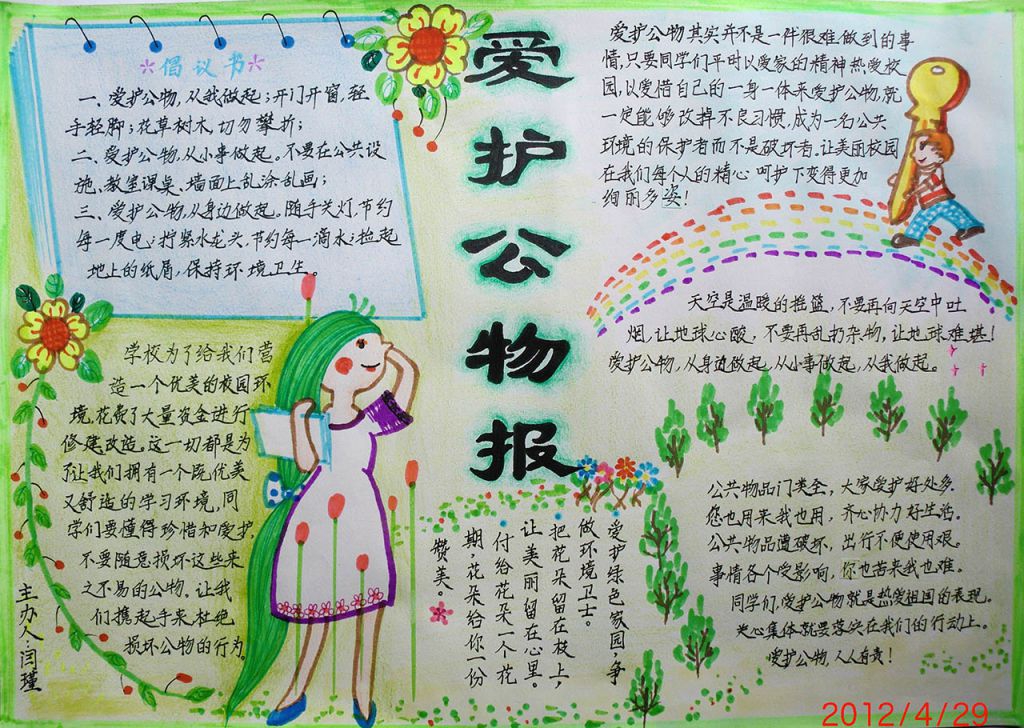 爱护公物报
*倡议书*
一、爱护公物，从我做起；开门开窗，轻
手轻脚；花草树木，切勿攀折；
二、爱护公物，从小事做起。不要在公共设
施、教室课桌、墙面上乱涂乱画；
三、爱护公物，从身边做起。随手关灯，节约
每一度电；拧紧水龙头，节约每一滴水；捡起
地上的纸屑，保持环境卫生。
爱护公物其实并不是一件很难做到的事
情，只要同学们平时以爱家的精神热爱校
园，以爱惜自己的一身一体来爱护公物，就
一定能够改掉不良习惯，成为一名公共
环境的保护者而不是破坏者。让美丽校园
在我们每个人的精心呵护下变得更加
绚丽多姿！
天空是温暖的摇篮，不要再向天空中吐
烟，让地球心酸，不要再乱扔杂物，让地球难堪！
爱护公物，从身边做起，从小事做起，从我做起。
学校为了给我们营
造一个优美的校园环
境，花费了大量资金进行
修建改造。这一切都是为
了让我们拥有一个既优美
又舒适的学习环境，同
学们要懂得珍惜和爱护，
不要随意损坏这些来
之不易的公物。让我
们携起手来，杜绝
损坏公物的行为。
主办人闫瑾
爱护绿色家园，争
做环境卫士。
把花朵留在枝上，
让美丽留在心里。
付给花朵一个花
期，花朵给你一份
赞美。
公共物品门类全，大家爱护好处多。
您也用来我也用，齐心协力好生活。
公共物品遭破坏，出行不便使用艰。
事情各个受影响，你也苦来我也难。
同学们，爱护公物就是热爱祖国的表现。
关心集体就要落实在我们的行动上。
爱护公物，人人有责！
2012/4/29